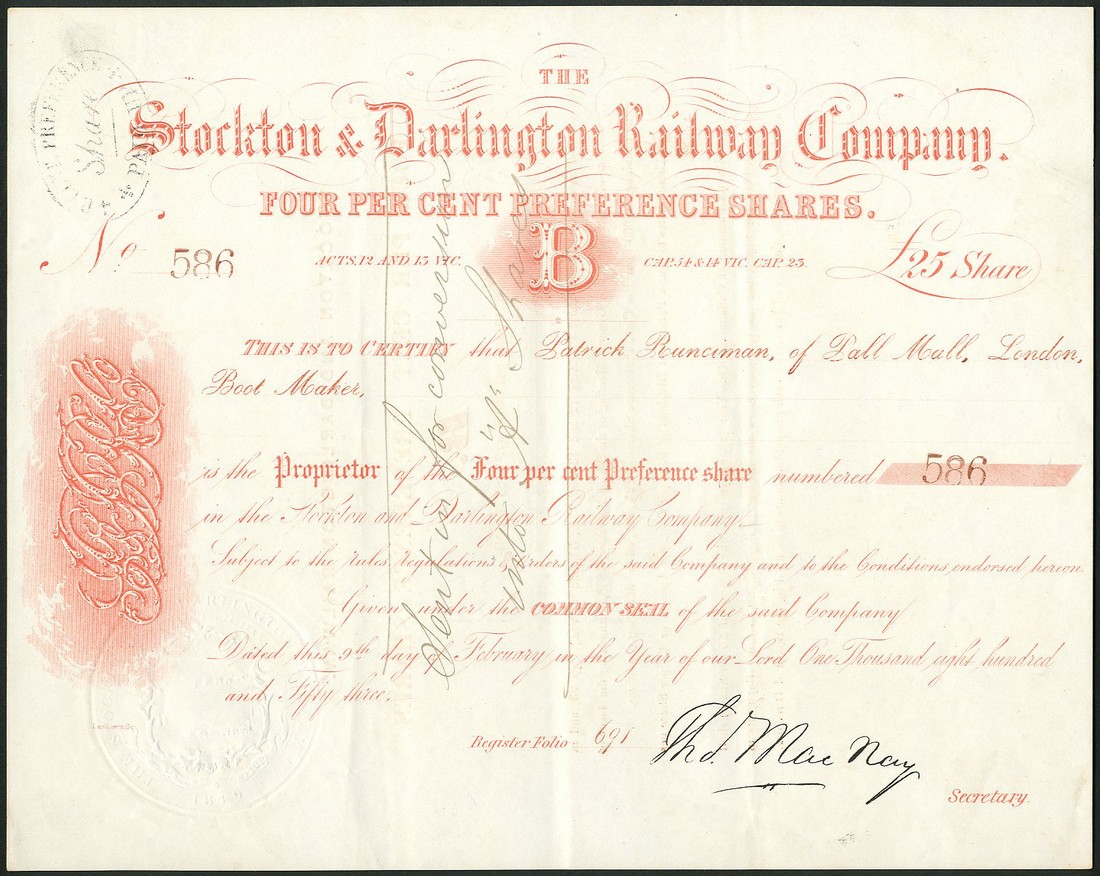 THE
Stockton & Darlington Railway Company.
FOUR PER CENT PREFERENCE SHARES.
Share
No 586
ACTS, 12 AND 13 VIC. B CAP. 54 & 14 VIC. CAP. 23.
£25 Share
THIS IS TO CERTIFY that Patrick Runciman, of Pall Mall, London,
Boot Maker,
is the Proprietor of the Four per cent Preference share numbered 586
in the Stockton and Darlington Railway Company
Subject to the Rules, Regulations & Orders of the said Company and to the Conditions endorsed hereon.
Given under the COMMON SEAL of the said Company
Dated this 9th day of February in the Year of our Lord One Thousand eight hundred
and Fifty three.
Register Folio 691
Thos. MacNay
Secretary.
Sent in for conversion
into Shares